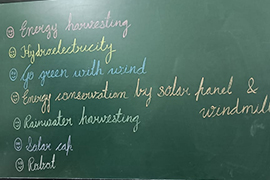 Energy harvesting
Hydroelectricity
Go green with wind
Energy conservation by solar panel &
windmill
Rainwater harvesting
Solar cap
Robot